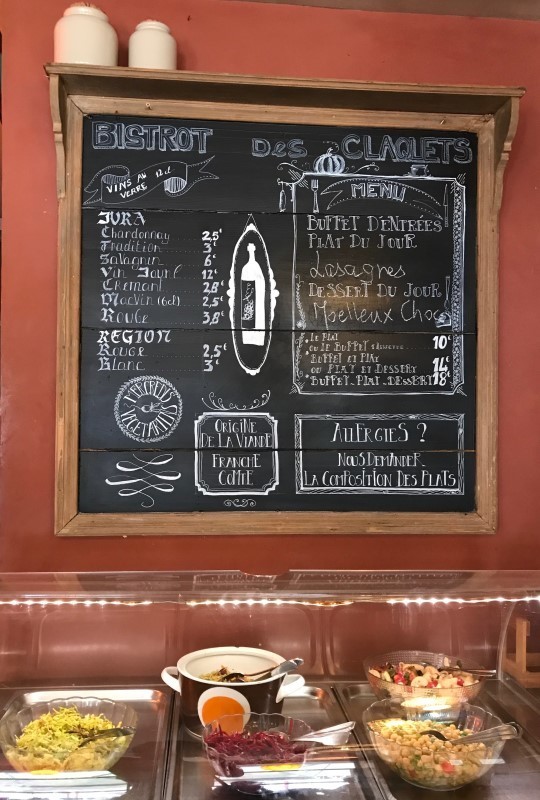 BISTROT DES CLAQUETS
VINS AU VERRE 12cl
JURA
Chardonnay 2,5€
Tradition 3€
Savagnin 6€
Vin Jaune 12€
Cremant
MacVin (6cl) 2,5€
Rouge 3,8€
REGION
Rouge 2,5€
Blanc 3€
VEGETARIEN
ORIGINE
DE LA VIANDE
FRANCHE
COMTE
MENU
BUFFET D'ENTRÉES
PLAT DU JOUR
Lasagnes
DESSERT DU JOUR
Moelleux Choc
LE PLAT
OU LE BUFFET 10€
BUFFET ET PLAT
OU PLAT ET DESSERT 14€
BUFFET.PLAT.DESSERT 18€
ALLERGIES ?
NOUS DEMANDER
LA COMPOSITION DES PLATS